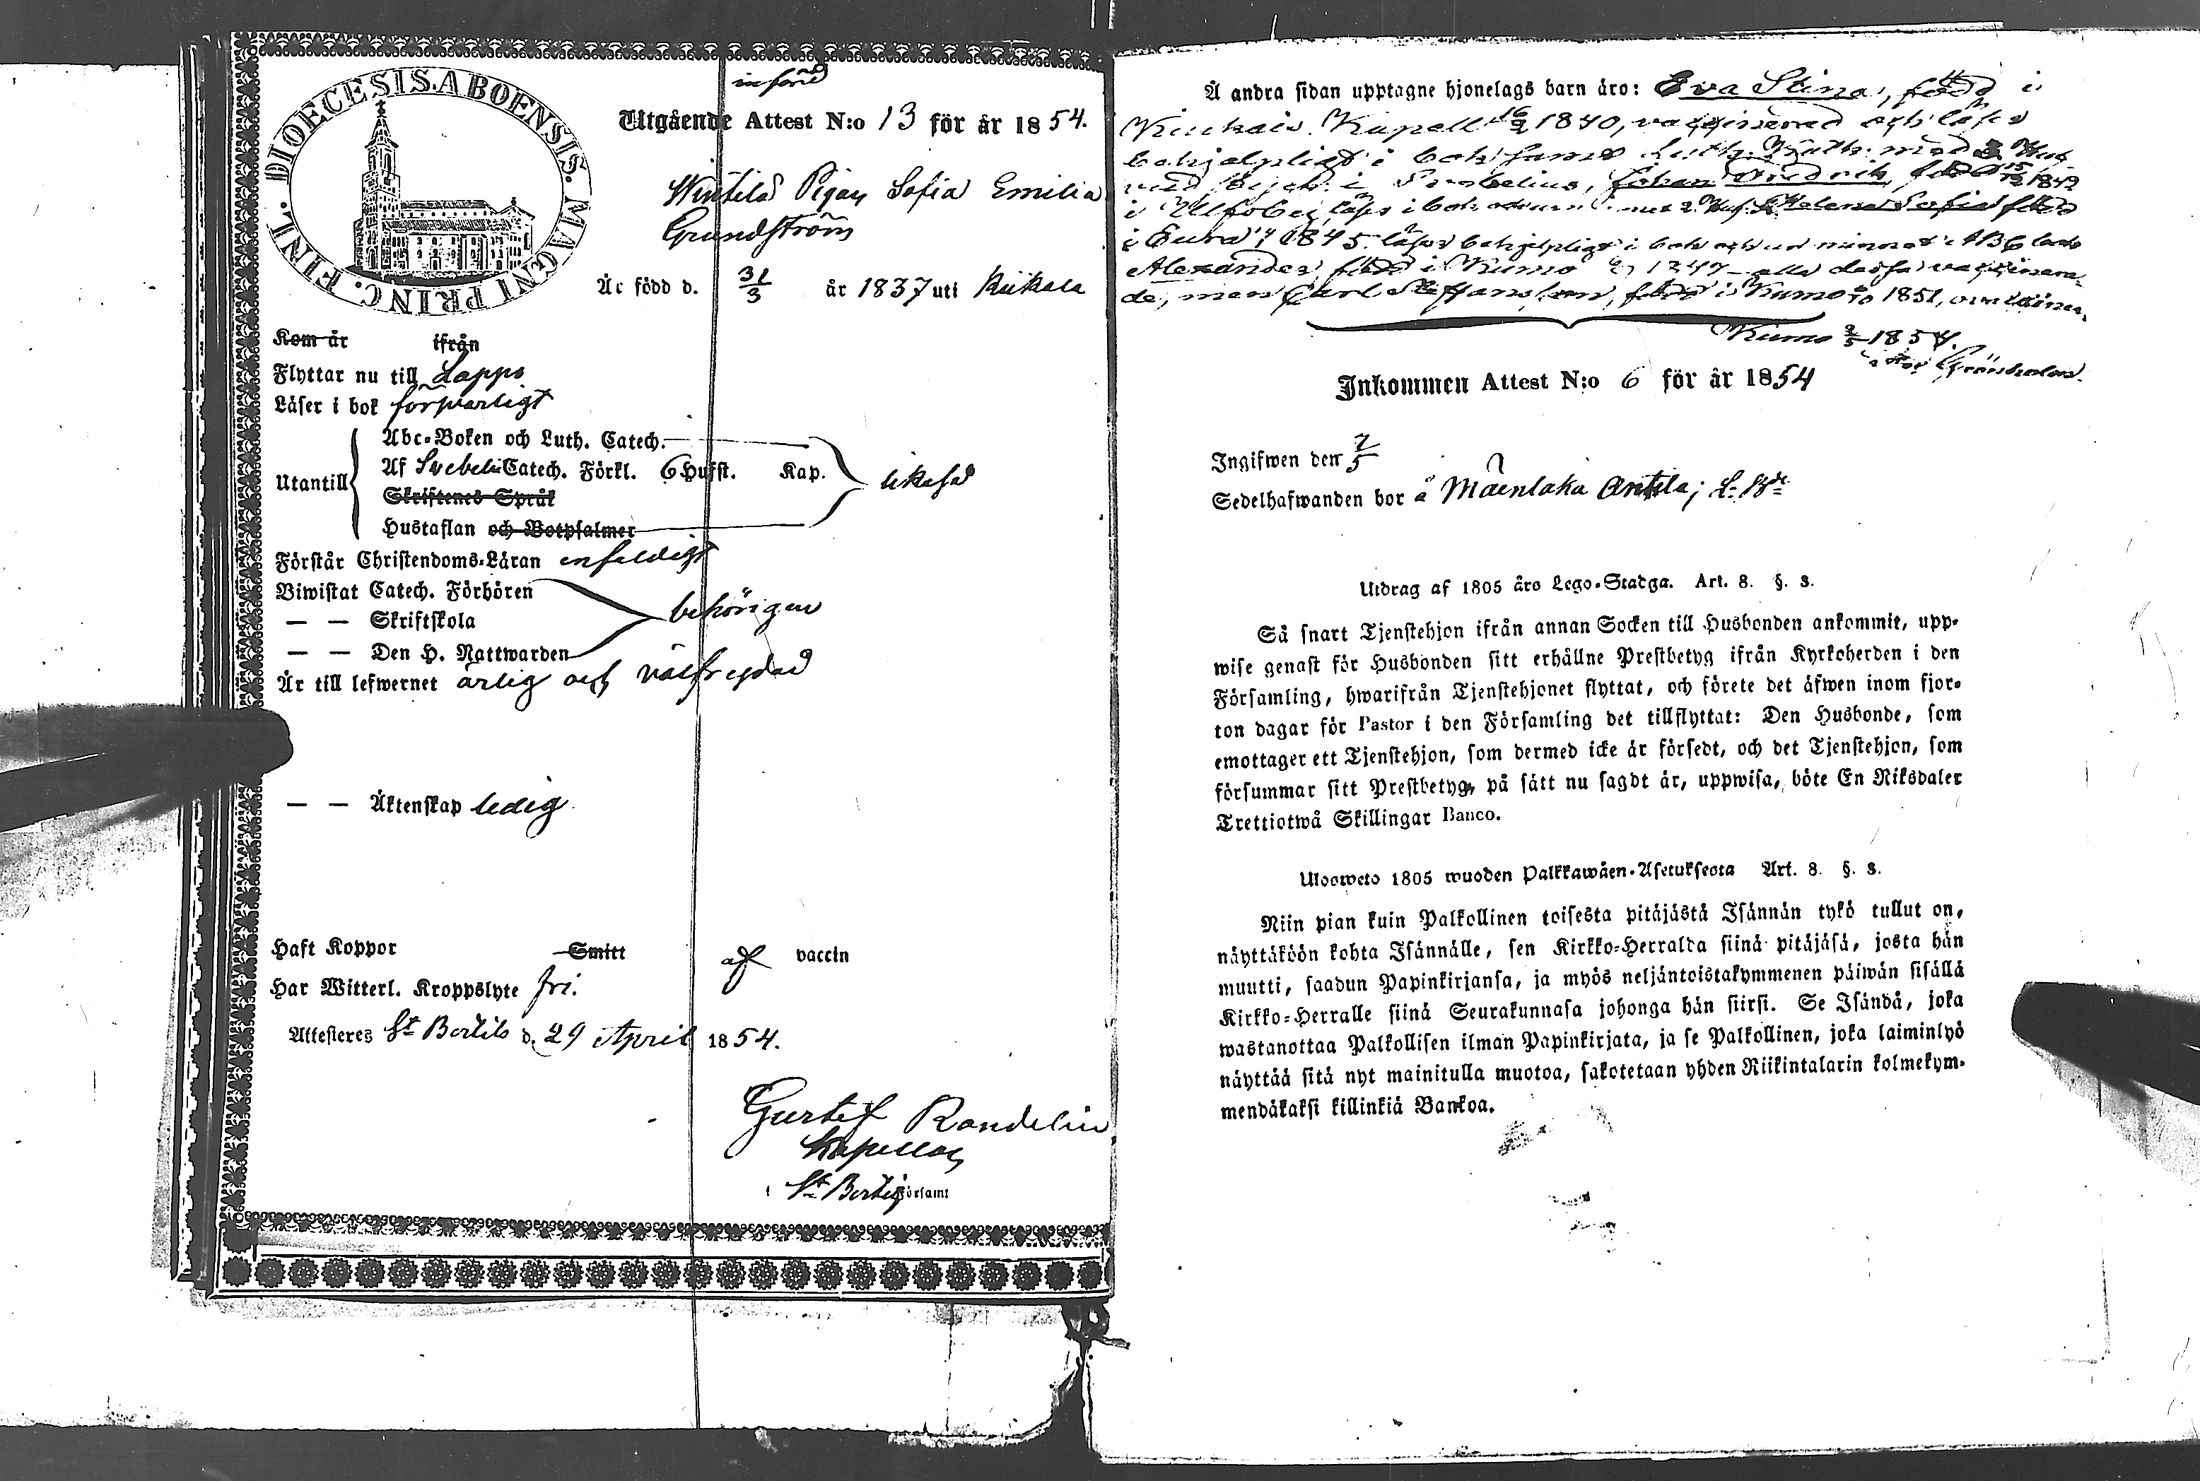 DIOECESIS ABOENSIS. MAGNI PRINC. FINL.
införd
Utgående Attest N:o 13 för år 1854.
Pigan Sofia Emilia
Grundström
Är född d. 31/3 år 1837 uti Kiikala
Kom år ifrån
Flyttar nu till Lappo
Läser i bok försvarligt
Utantill
Abc-Boken och Luth. Catech.
Af Svebelii Catech. Förkl. 6 Hufst. Kap.
likaså
Skriftenes Språk
Hustaflan och Botpsalmer
Förstår Christendoms-Läran enfaldigt
Biwistat Catech. Förhören
— — Skriftskola
behörigen
— — Den H. Nattwarden
Är till lefwernet ärlig och välfrejdad
— — Äktenskap ledig
Haft Koppor Smitt af vaccin
Har Witterl. Kroppslyte fri.
Attesteras St Bertils d. 29 April 1854.
Gustaf Randelin
Kapellan
i St Bertils Församl
Å andra sidan upptagne hjonelags barn äro: Eva Stina, född i
Kapell 1840, vaccinerad och läser
behjelpligt i bok samt Luth. Kath. med 3 Huf
Svebelius, Johan Fredrik, född 1842
i Ulfsby, läser i bok Helena Sofia född
i Eura 1845 läser behjelpligt i bok och ur minnet ABC bok
Alexander, född i Kumo 1847 alla dessa vaccinera-
de, men Carl Steffanus, född i Kumo 1851,
Kumo 3/5 1854.
Grönholm.
Inkommen Attest N:o 6 för år 1854
Ingifwen den 7/5
Sedelhafwanden bor å Anttila;
Utdrag af 1805 års Lego-Stadga. Art. 8. §. 3.
Så snart Tjenstehjon ifrån annan Socken till Husbonden ankommit, upp-
wise genast för Husbonden sitt erhållne Prestbetyg ifrån Kyrkoherden i den
Församling, hwarifrån Tjenstehjonet flyttat, och förete det äfwen inom fjor-
ton dagar för Pastor i den Församling det tillflyttat: Den Husbonde, som
emottager ett Tjenstehjon, som dermed icke är försedt, och det Tjenstehjon, som
försummar sitt Prestbetyg, på sätt nu sagdt är, uppwisa, böte En Riksdaler
Trettiotwå Skillingar Banco.
Ulosweto 1805 wuoden Palkkawäen-Asetuksesta Art. 8. §. 3.
Niin pian kuin Palkollinen toisesta pitäjästä Isännän tykö tullut on,
näyttäköön kohta Isännälle, sen Kirkko-Herralda siinä pitäjäsä, josta hän
muutti, saadun Papinkirjansa, ja myös neljäntoistakymmenen päiwän sisällä
Kirkko-Herralle siinä Seurakunnasa johonga hän siirsi. Se Isändä, joka
wastanottaa Palkollisen ilman Papinkirjata, ja se Palkollinen, joka laiminlyö
näyttää sitä nyt mainitulla muotoa, sakotetaan yhden Riikintalarin kolmekym-
mendäkaksi killinkiä Bankoa.